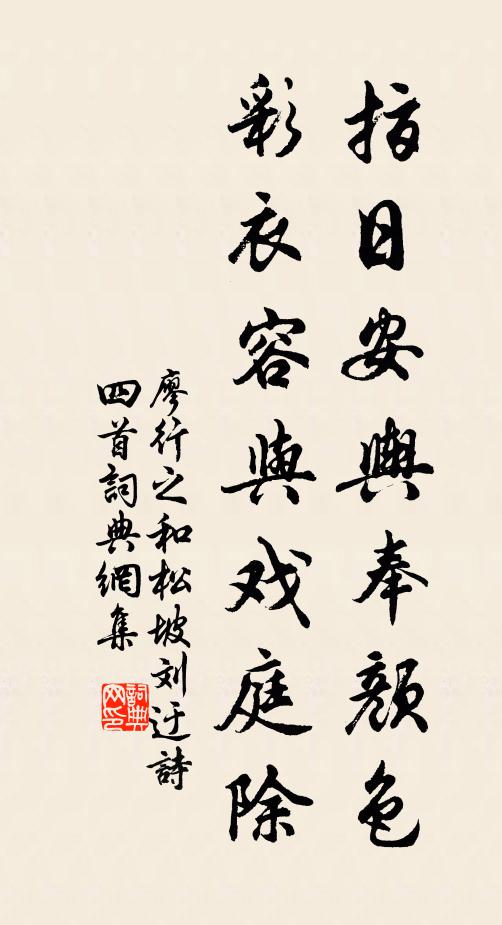 指日安輿奉顏色
彩衣容與戏庭除
廖行之和松坡刘迂詩
四首詞典網集
詞典
网印